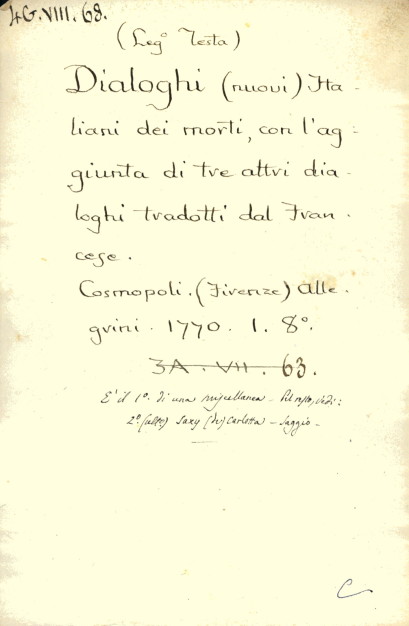 4G.VIII.68.
(Leg.º Testa)
Dialoghi (nuovi) Ita-
liani dei morti, con l'ag-
giunta di tre altri dia-
loghi tradotti dal Fran-
cese.
Cosmopoli. (Firenze) Alle-
grini. 1770. 1. 8º.
3A. VII. 63.
E' il 1º. di una miscellanea - Pel resto, vedi:
2º. Saxy (de) Carlotta - Saggio -
C